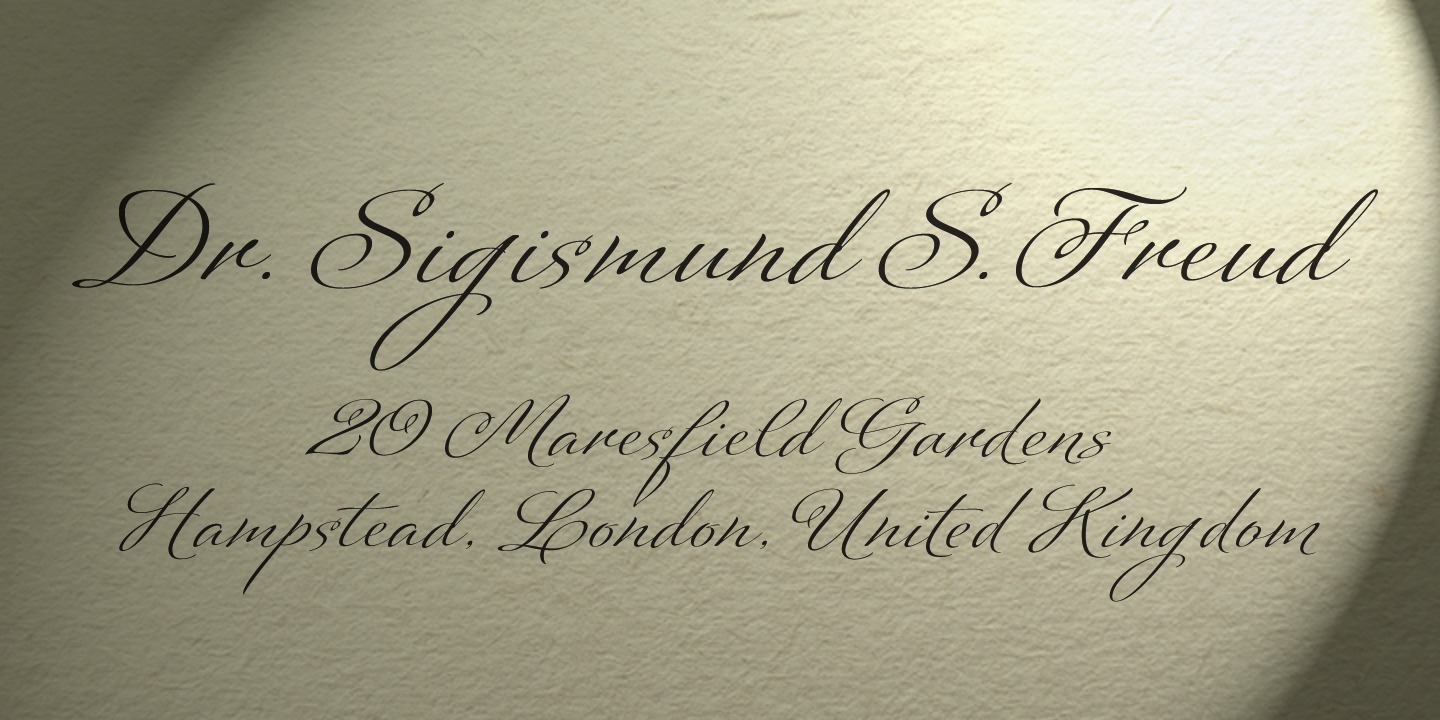 Dr. Sigismund S. Freud
20 Maresfield Gardens
Hampstead, London, United Kingdom